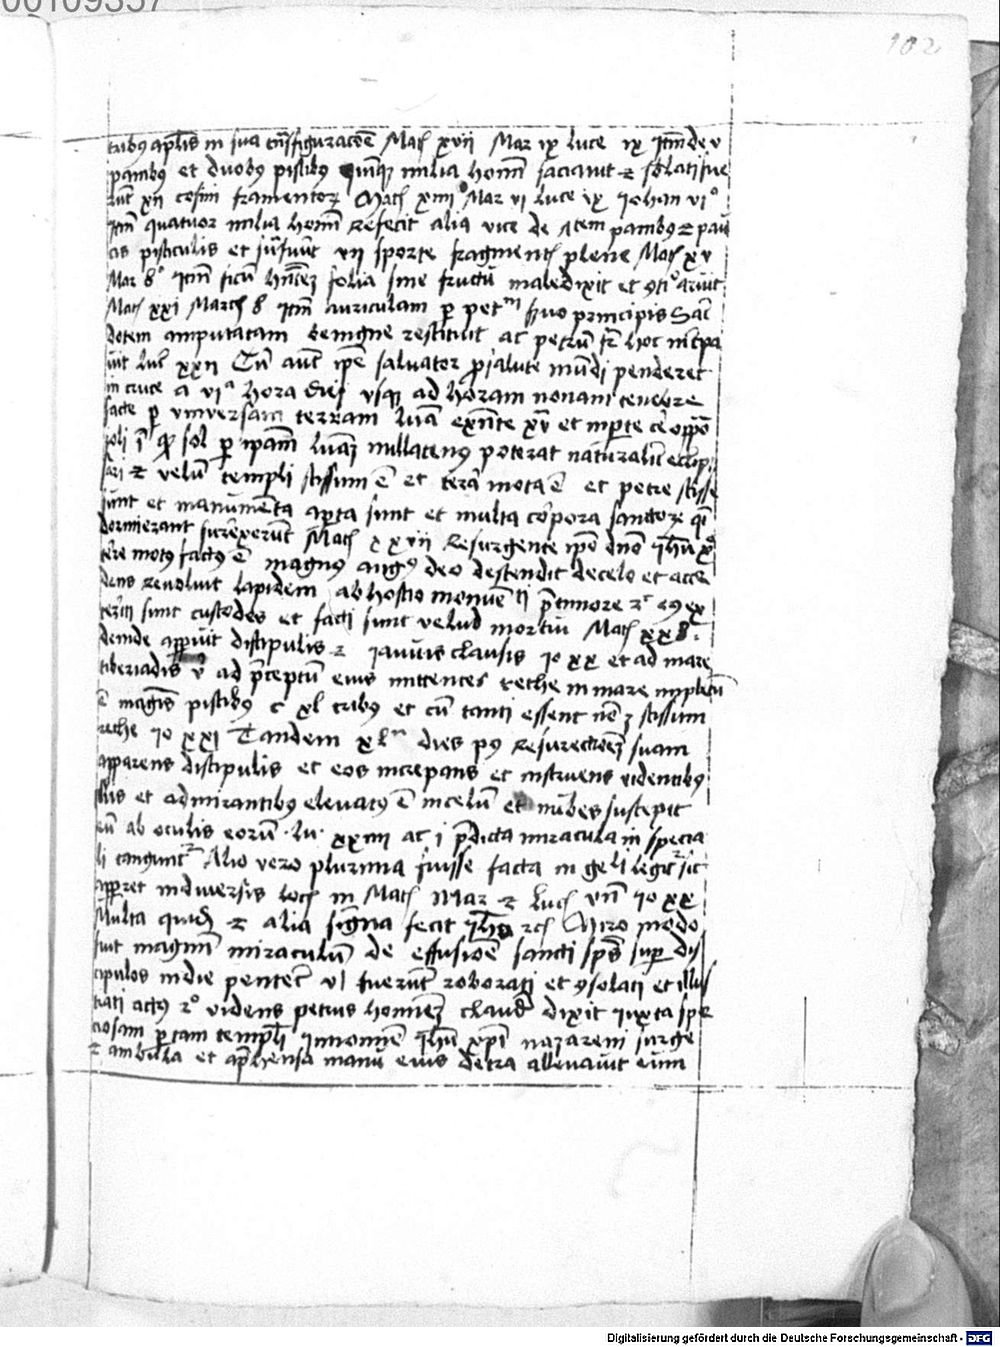 00109357
102
tribus aplis in sua tnsfiguracōe Mat xvii Mar ix luce ix Itm de v
panibus et duobus piscibus quinque milia homī saciavit et sblati fue
rūt xii cofini framentorum Math xiiii Mar vi luce ix Johan vi°
Itm quatuor milia homī refecit alia vice de septem panibus et pau
cis pisticulis et suꝑfuūt vii sporte fragmenti plene Mat xv
Mar 8° Itm ficū hntem folia sine fructu maledixit et aruit
Mat xxi March 8 Itm auriculam per petm servo principis Sac
dotem amputatam benigne restituit ac petrum hoc increpa
vit luc xxii Cū aut ipe salvator pro salute mūdi penderet
in cruce a vi hora diei usque ad horam nonam tenebre
facte per universam terram lūa exnte xv et in parte
soli quod sol per ipam lunam nullatenus poterat naturalit eclip
sari et velum templi scissum ē et terra mota ē et petre scisse
sunt et monumenta apta sunt et multa corpora sanctorum qui
dormierant surrexerūt Math xxvii Resurgente ipo dno ihu xpo
terre motus factus ē magnus angus deo descendit de celo et acce
dens revoluit lapidem ab hostio monumēti pre timore
territi sunt custodes et facti sunt velud mortui Mat xx8
deinde apparuit discipulis et januis clausis Jo xx et ad mare
tiberiadis ad preceptū eius mittentes rethe in mare impletū
ē magnis piscibus c xl tribus et cū tanti essent nō ē scissum
rethe Jo xxi Tandem xl dies post resurectōem suam
apparens discipulis et eos increpans et instruens videntibus
illis et admirantibus elevatus ē in celum et nubes suscepit
eū ab oculis eorū lu xxiiii ac i predicta miracula in specia
li tanguntur Alio vero plurima fuisse facta in legitur sic
apparet in diversis locis in Mat Mar et Luc Jo xx
Multa quidem et alia signa fecit ihs Miro modo
fuit magnū miraculū de effusione sancti sps super dis
cipulos in die pentec fuerūt roborati et consolati et illus
trati actus videns petrus hominem claud dixit iuxta spe
ciosam portam templi In nomine ihu xpi nazareni surge
et ambula et apprehensa manu eius dextra allevavit eum
Digitalisierung gefördert durch die Deutsche Forschungsgemeinschaft - DFG